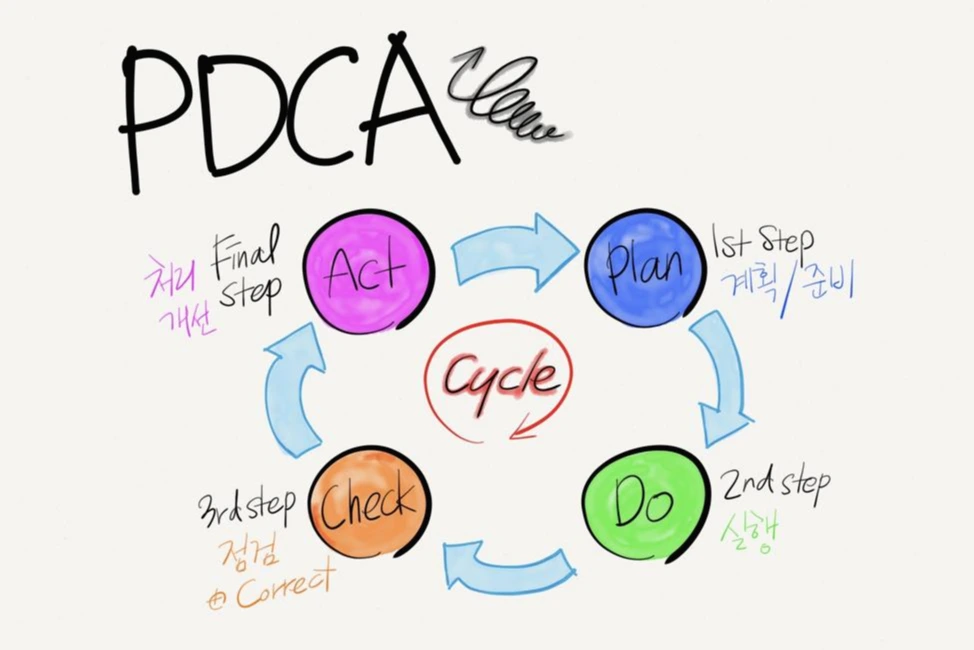 PDCA
Final
step
처리
개선
Act
Plan
1st Step
계획/준비
Cycle
3rd step
점검
⊕ Correct
Check
Do
2nd step
실행